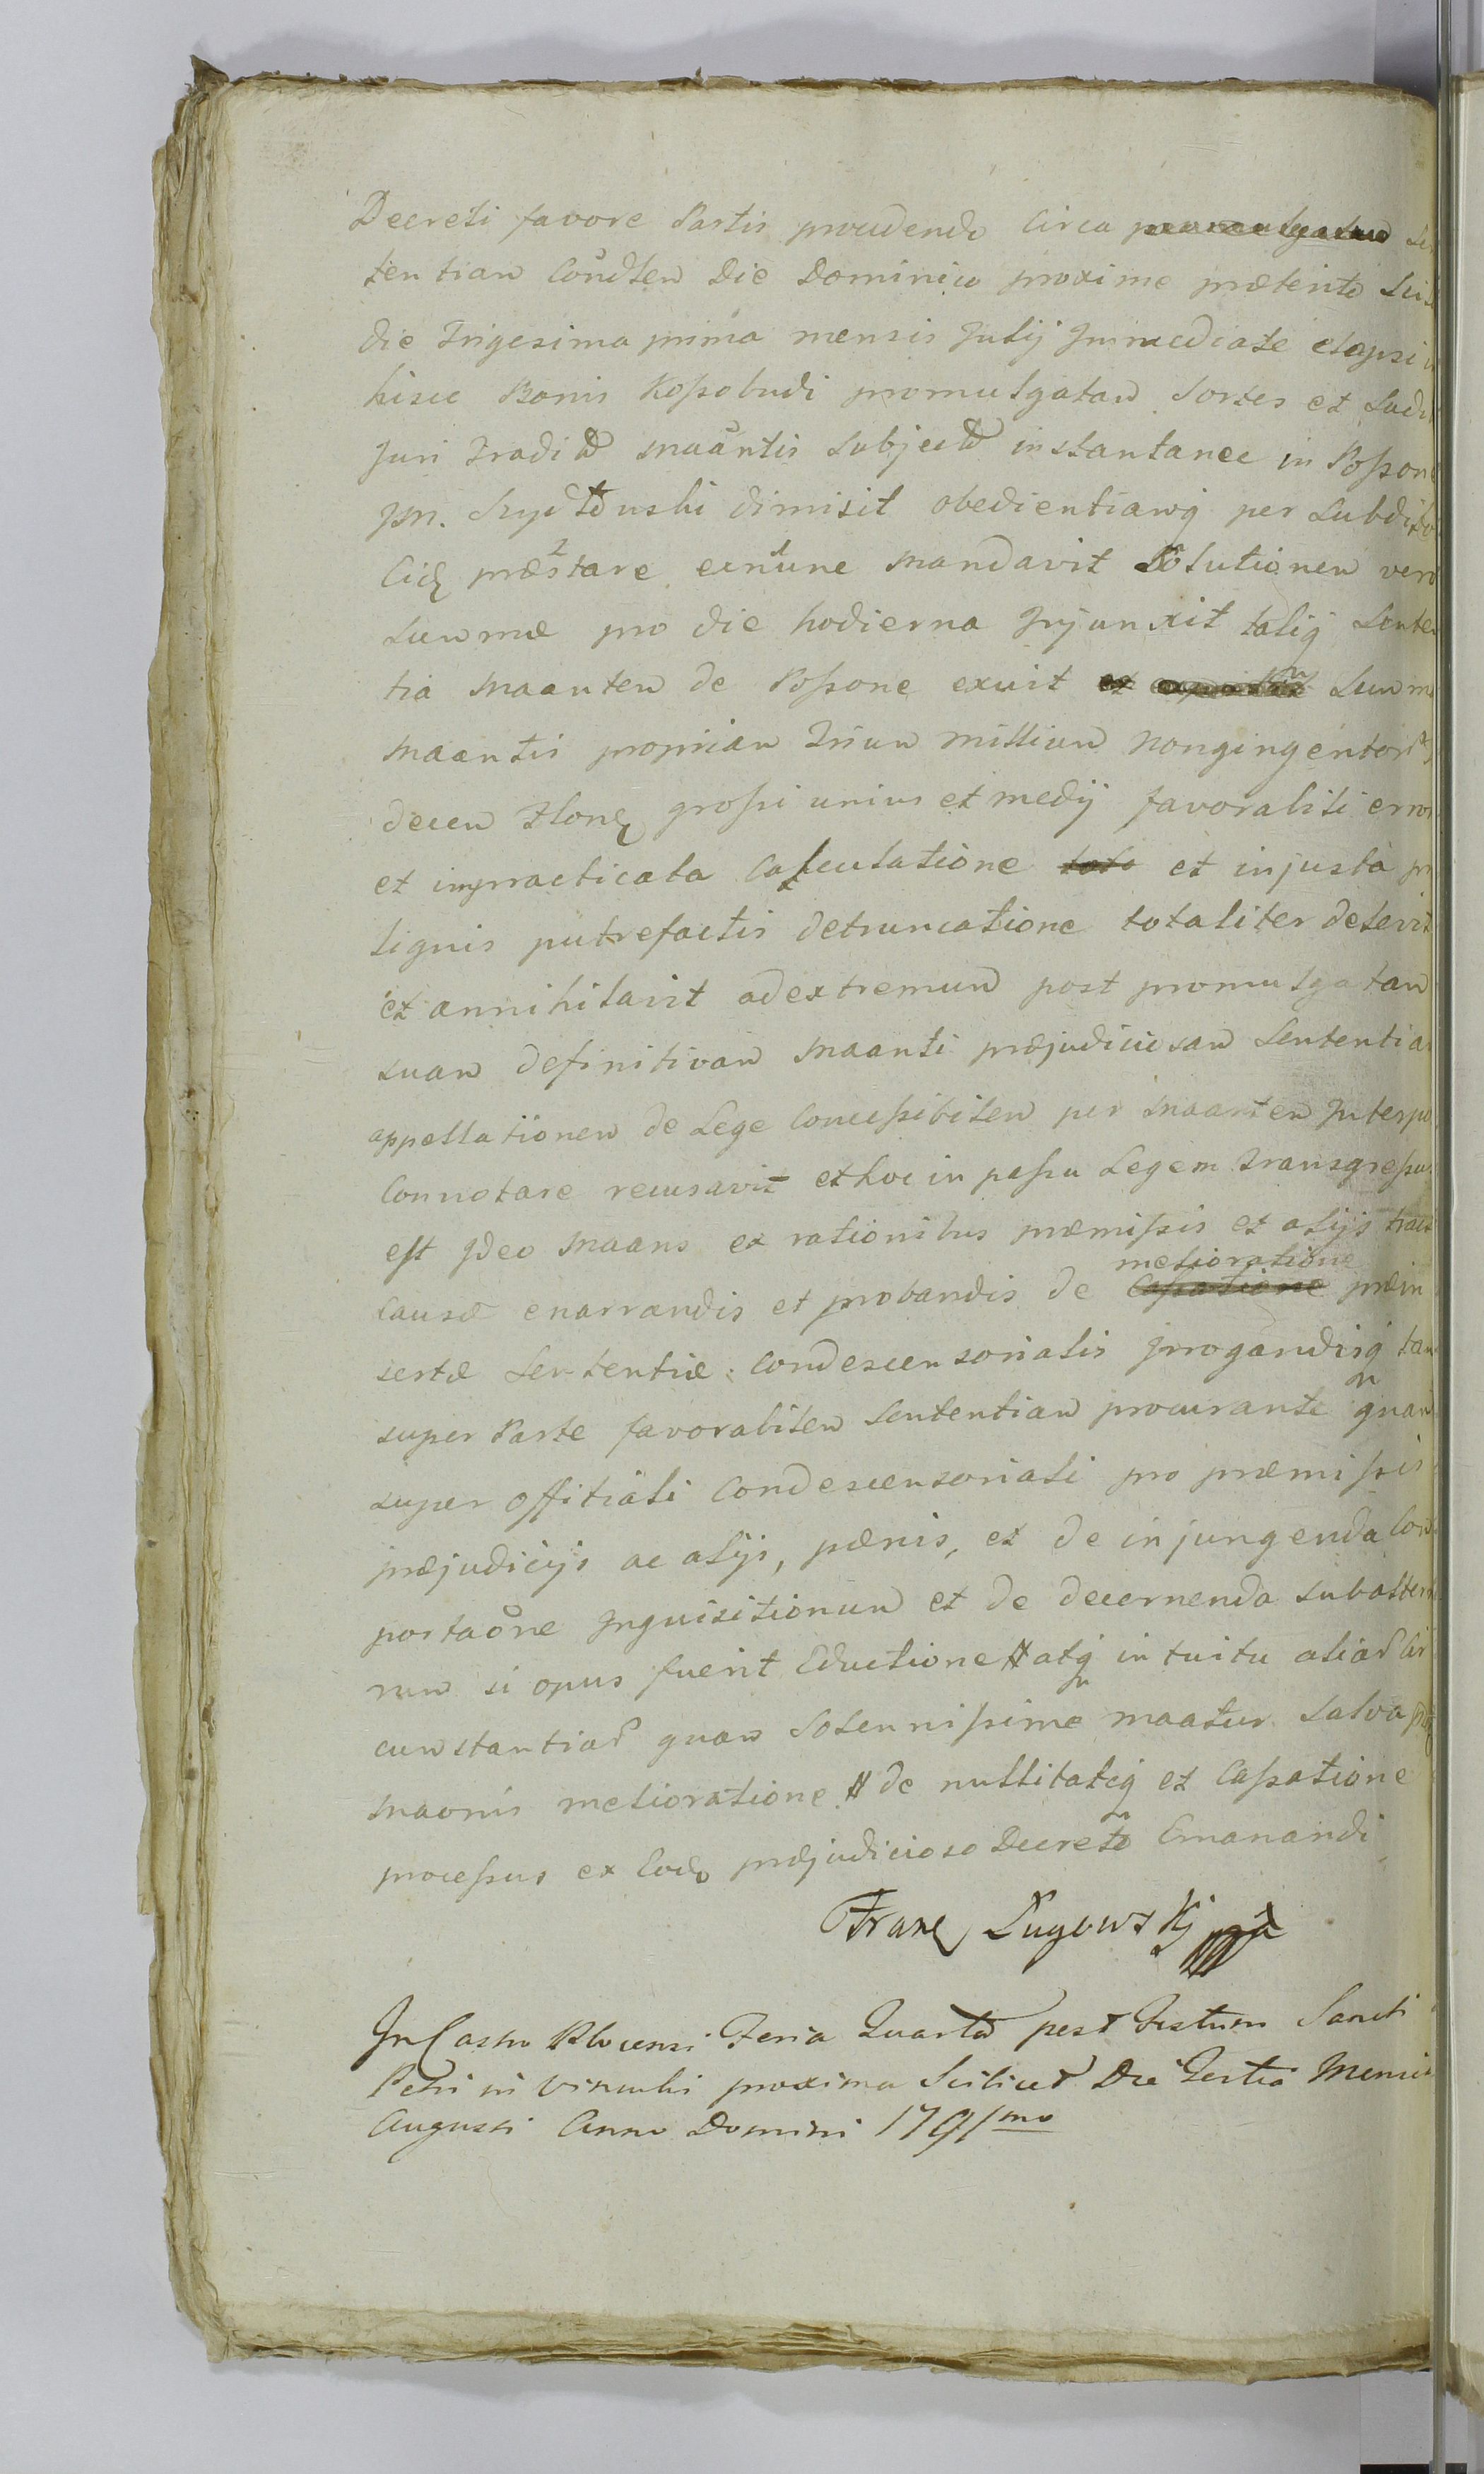 Decreti favore Partis procudendo Circa promulgatam Sen
tentiam Condsen Die Dominico proxime præterito Sci
die Trigesima prima mensis Julij Immediate elapsi i
hisce Bonis Kossobudi promulgatam Sortes et
Juri Tradit maantis Subject instantanee in Possone
dimisit obedientiamq per Subdito
præstare mandavit Solutionem vero
Summæ pro die hodierna Injunxit taliq Senten
tia maantem de Possone exuit et Summa
maantis propriam Trium millium nongingentor
decem Flon grossi unius et medij favorabili erro
et impracticata Calculatione toto et injusta pr
lignis putrefactis detruncatione totaliter delevit
et annihilavit ad extremum post promulgatam
suam definitivam maanti præjudiciosam Sententia
appellationem de Lege Concessibilem per maantem Interpo
Connotare recusavit et hoc in passu Legem Transgressus
est Ideo maans ex rationibus præmissis et alijs tract
melioratione
causæ enarrandis et probandis de Cassatione præin
sertæ Sententiæ Condescensorialis Irrogandisq tam
super Parte favorabilem Sententiam procurante quam
super Offitiali Condescensoriali pro præmissis
præjudicijs ac alijs, pænis, et de injungenda Com
portaone Inquisitionum et de decernenda subalter
num si opus fuerit Eductione # atq intuitu aliar Cir
cumstantiar quam Solennissime maatur Salva
maonis melioratione # de nullitateq et Cassatione
processus ex Eod præjudicioso Decreto Emanandi
Franc Ługowskj
In Castro Plocensi Feria Quarta post Festum Sancti
Petri in Vinculi proxima Scilicet Die Tertia Mensis
Augusti Anno Domini 1791mo